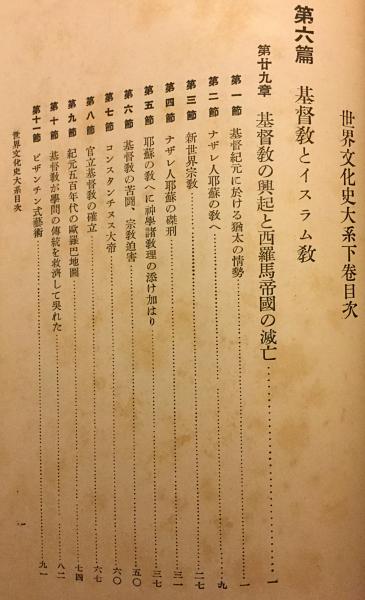 世界文化史大系下卷目次
第六篇　基督敎とイスラム敎
第廿九章　基督敎の興起と西羅馬帝國の滅亡……………一
第一節　基督紀元に於ける猶太の情勢……………一
第二節　ナザレ人耶蘇の敎へ……………九
第三節　新世界宗敎……………二七
第四節　ナザレ人耶蘇の磔刑……………三一
第五節　耶蘇の敎へに神學諸敎理の添け加はり……………三七
第六節　基督敎の苦鬪、宗敎迫害……………五〇
第七節　コンスタンチヌス大帝……………六〇
第八節　官立基督敎の確立……………六七
第九節　紀元五百年代の歐羅巴地圖……………七四
第十節　基督敎が學問の傳統を救濟して吳れた……………八二
第十一節　ビザンチン式學術……………九一
世界文化史大系目次
一